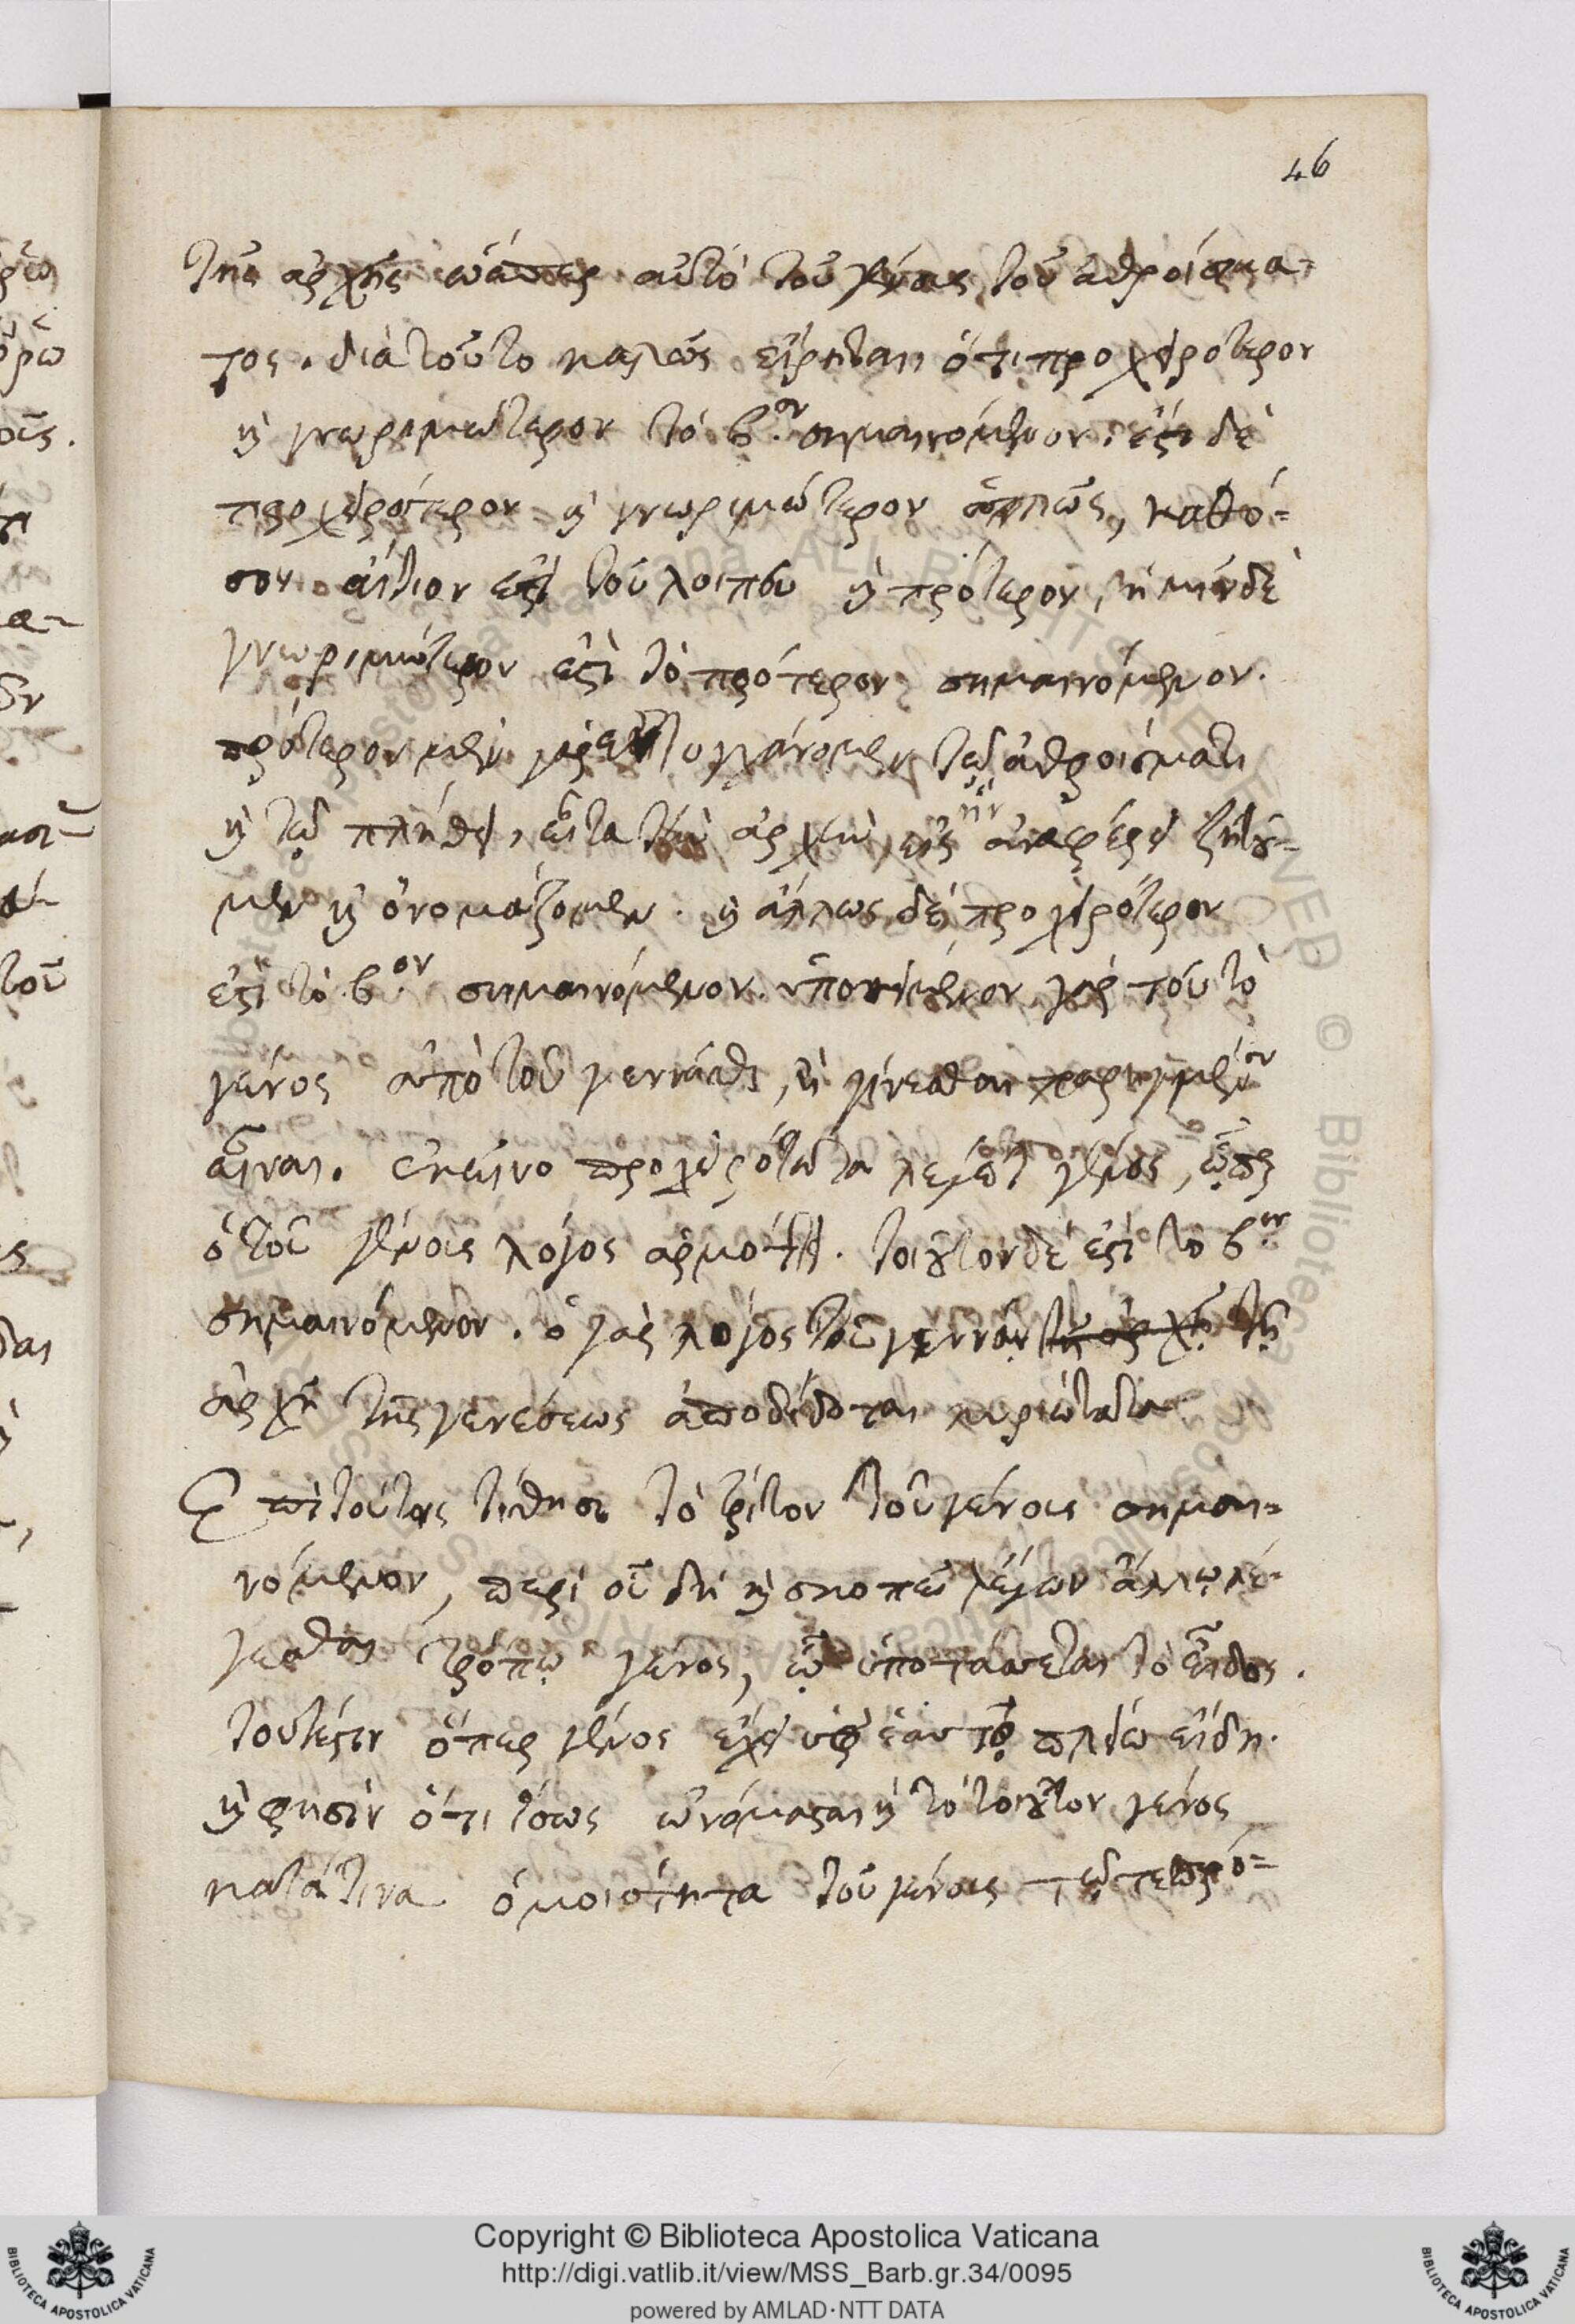 46
τῆς ἀρχῆς αὐτὸ τοῦ γένους τοῦ ἀθροίσμα-
τος. διὰ τοῦτο καλῶς εἴρηται ὅτι προχειρότερον
καὶ γνωριμώτερον τὸ β.ον σημαινόμενον. ἔστι δὲ
προχειρότερον καὶ γνωριμώτερον ἁπλῶς, καθό-
σον αἴτιον ἐστὶ τοῦ λοιποῦ καὶ πρότερον, ἡμῖν δὲ
γνωριμώτερον ἐστὶ τὸ πρότερον σημαινόμενον.
πρότερον μὲν γὰρ ἐντυγχάνομεν τῷ ἀθροίσματι
καὶ τῷ πλήθει, εἶτα τὴν ἀρχὴν, εἰς ἣν ἀναφέρει ζητοῦ-
μεν καὶ ὀνομάζομεν. καὶ ἄλλως δὲ προχειρότερον
ἐστὶ τὸ β.ον σημαινόμενον. γὰρ τοῦτο
γένος ἀπὸ τοῦ γεννᾶσθαι, ἢ γίνεσθαι παρηγμένον
εἶναι. ἐκεῖνο προχειρότατα λέγεται γένος, ᾧπερ
ὁ τοῦ γένους λόγος ἁρμόττει. τοιοῦτον δέ ἐστι τὸ β.ον
σημαινόμενον. ὁ γὰρ λόγος τοῦ γεννᾶν τῇ ἀρχῇ τῇ
ἀρχῇ τῆς γενέσεως ἀποδίδοται κυριώτατα
Ἐπὶ τούτοις τίθησι τὸ τρίτον τοῦ γένους σημαι-
νόμενον, περὶ οὗ δὴ καὶ σκοπεῖ λέγων ἄλλῳ λέ-
γεσθαι τρόπῳ γένος, ᾧ ὑποτάσσεται τὸ εἶδος.
τουτέστιν ὅπερ γένος ἔχει ὑφ' ἑαυτὸ πλείω εἴδη.
καὶ φησὶν ὅτι ἴσως ὠνόμασται καὶ τὸ τοιοῦτον γένος
κατά τινα ὁμοιότητα τοῦ γένους
Copyright © Biblioteca Apostolica Vaticana
http://digi.vatlib.it/view/MSS_Barb.gr.34/0095
powered by AMLAD·NTT DATA